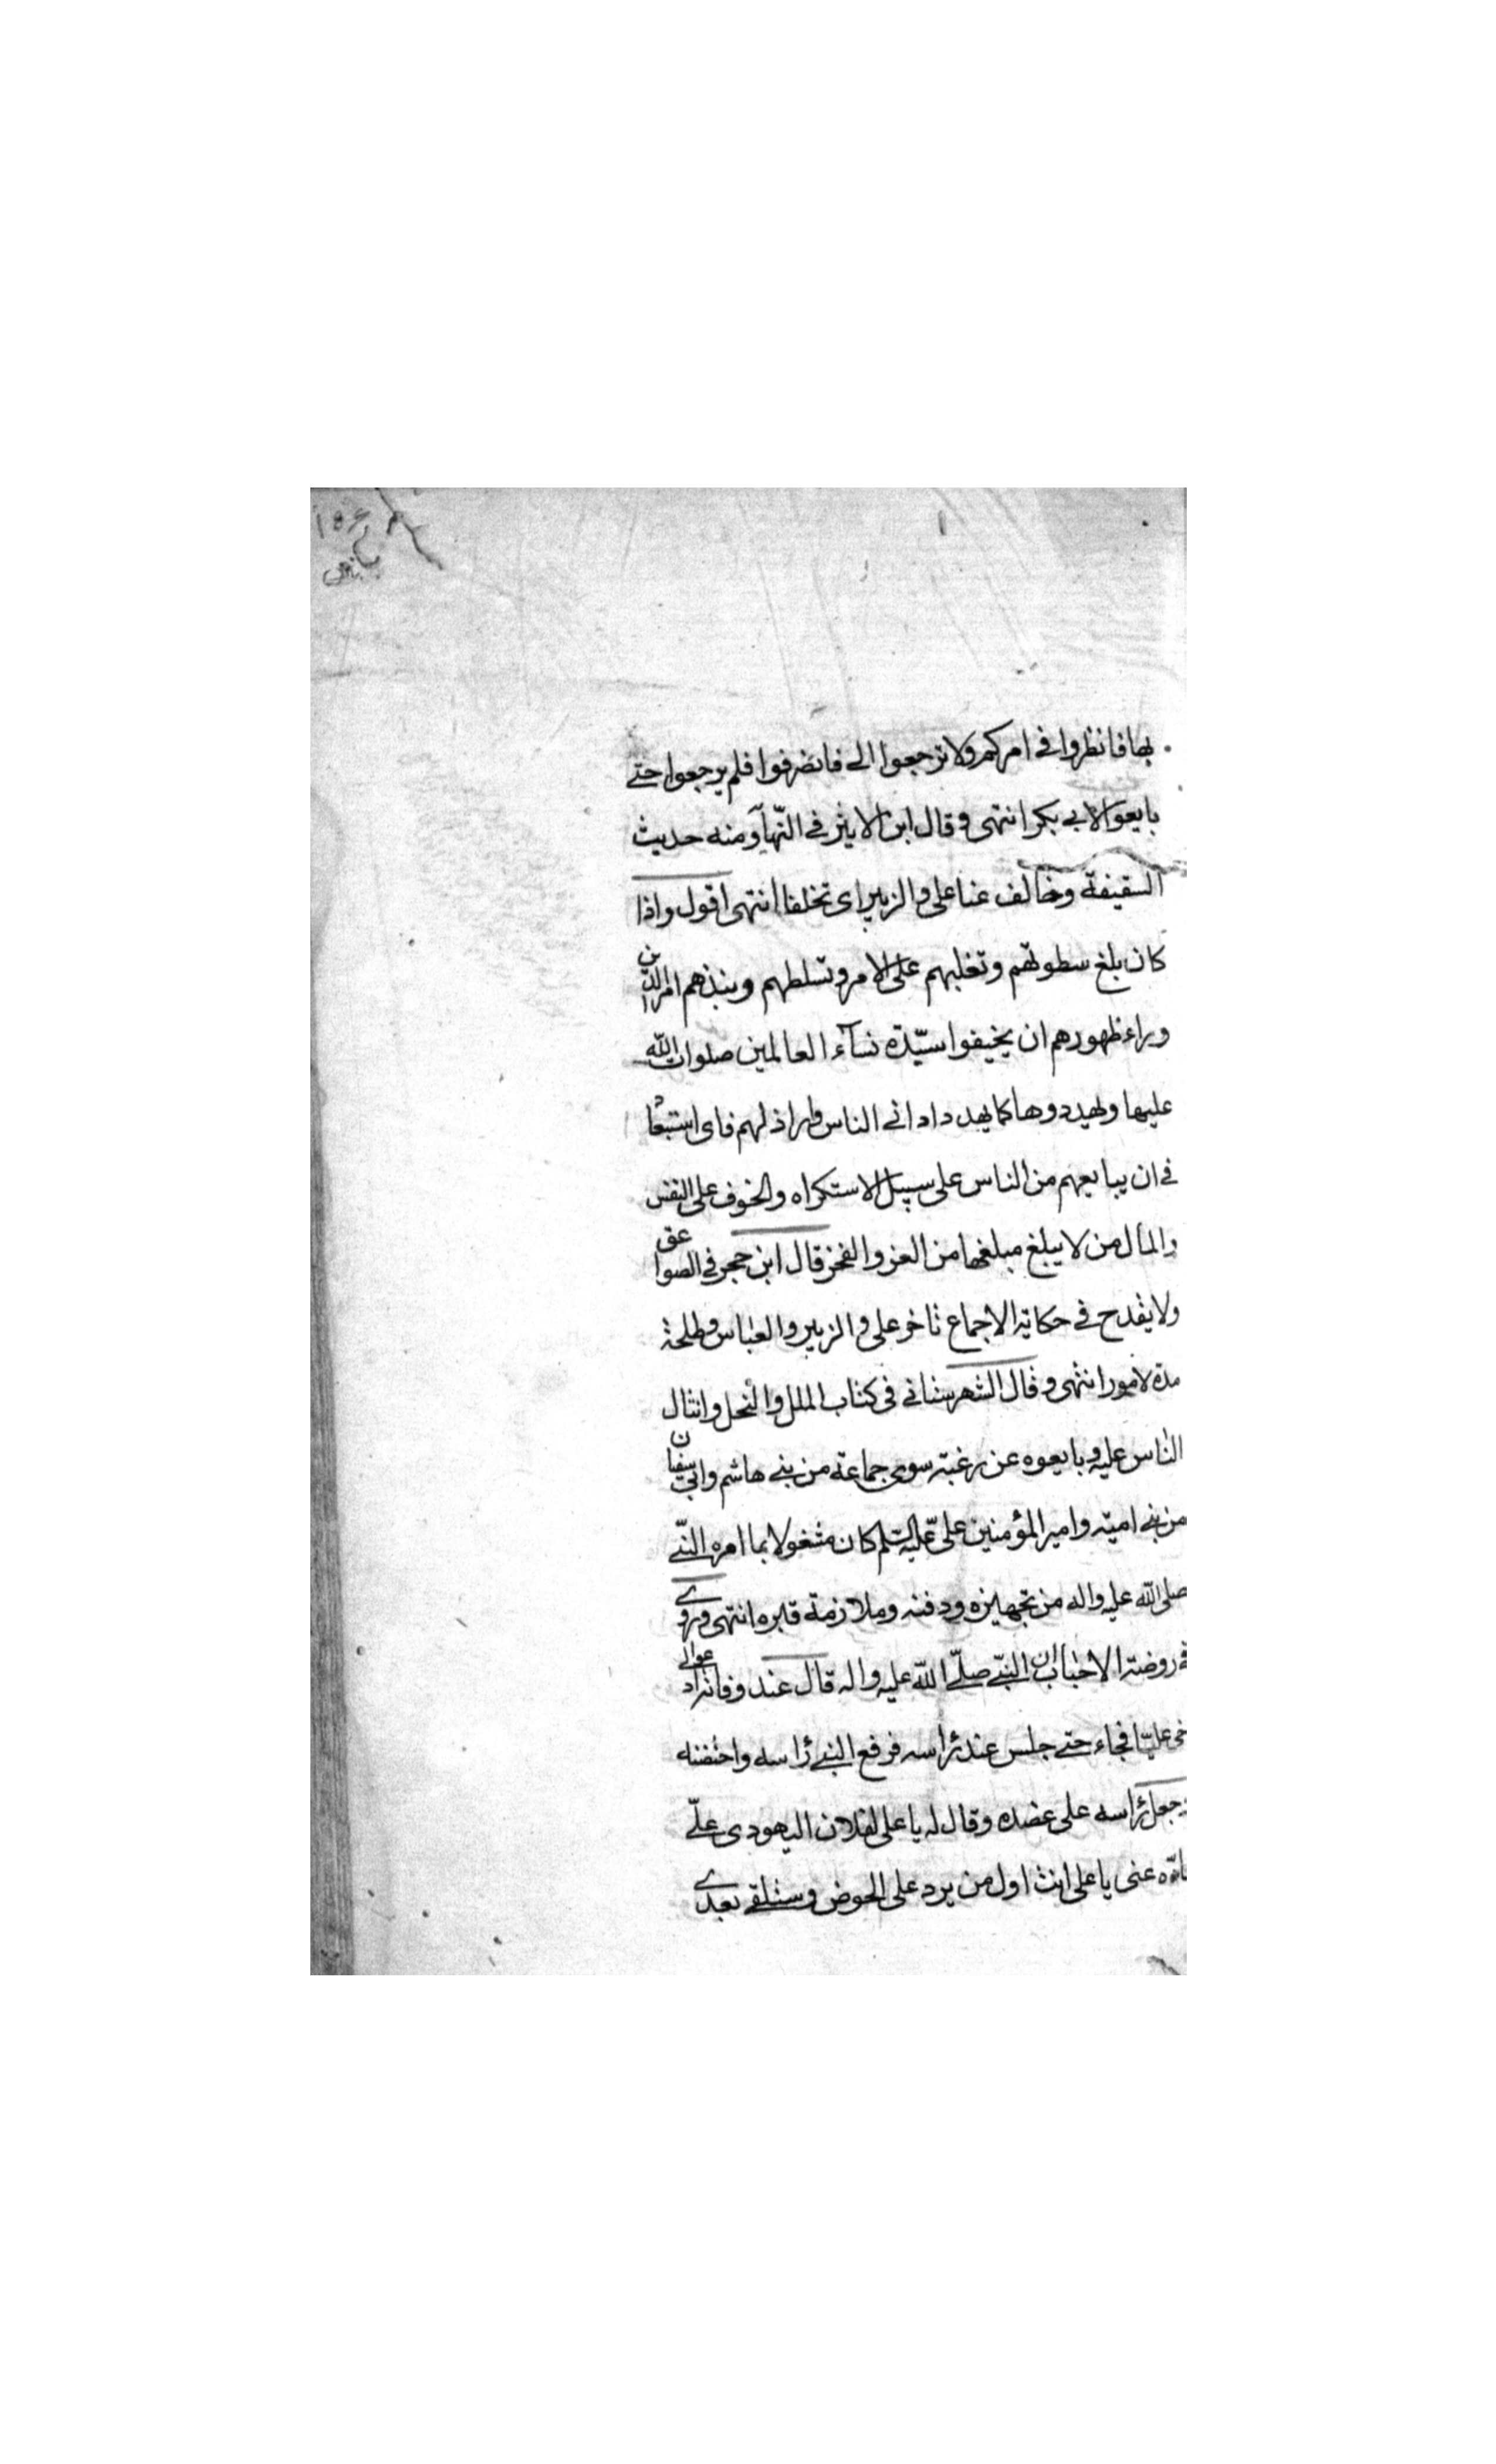 بها فانظروا في امركم ولا ترجعوا الي فانصرفوا فلم يرجعوا حتى
بايعوا لابي بكر انتهى وقال ابن الاثير في النهاية ومنه حديث
السقيفة وخالف عنا علي والزبير اى تخلفا انتهى اقول واذا
كان بلغ سطوتهم وتغلبهم على الامر وتسلطهم ونبذهم امر الدين
وراء ظهورهم ان يخيفوا سيّدة نسآء العالمين صلوات الله
عليها ويهددوها كما يهدد اداني الناس واراذلهم فاى استبعاد
في ان يبايعهم من الناس على سبيل الاستكراه والخوف على النفس
والمال من لا يبلغ مبلغها من العز والفخر قال ابن حجر في الصواعق
ولا يقدح في حكاية الاجماع تاخر علي والزبير والعباس وطلحة
مدة لامور انتهى وقال الشهرستاني في كتاب الملل والنحل وانثال
الناس عليه وبايعوه عن رغبته سوى جماعة من بني هاشم وابي سفيان
من بني امية وامير المؤمنين علىّ عليه السلم كان مشغولا بما امره النبّي
صلى الله عليه واله من تجهيزه ودفنه وملازمة قبره انتهى وروى
في روضة الاحباب ان النبّي صلّى الله عليه واله قال عند وفاته ادعوا لي
اخي عليّا فجاء حتى جلس عند راسه فرفع النبي راسه واحتضنه
وجعل راسه على عضده وقال له يا علي لفلان اليهودى علّي
عنى يا على انت اول من يرد على الحوض وستلقى بعدى